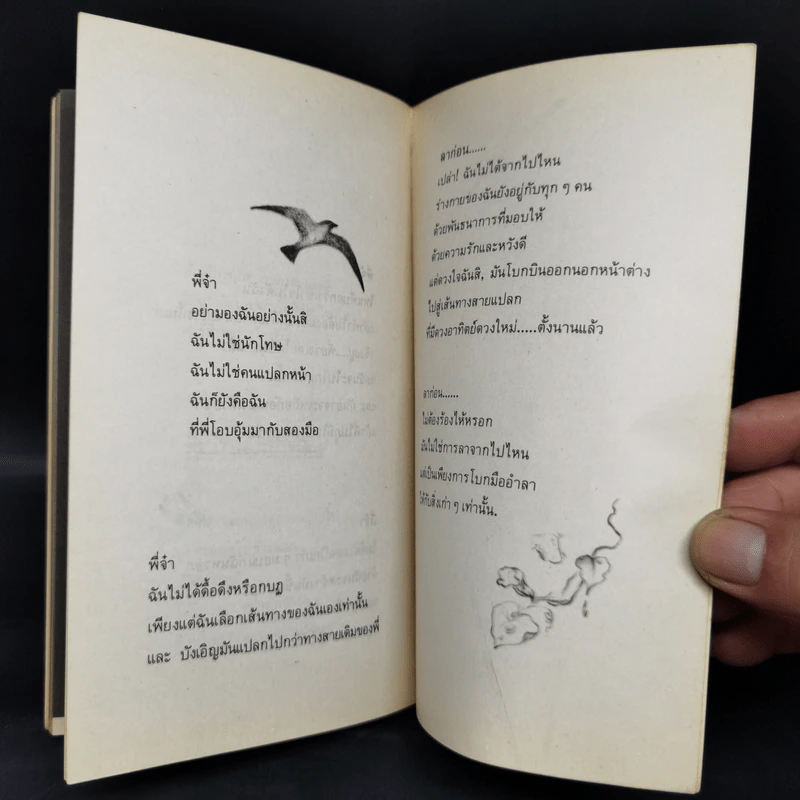 พี่จ๋า
อย่ามองฉันอย่างนั้นสิ
ฉันไม่ใช่นักโทษ
ฉันไม่ใช่คนแปลกหน้า
ฉันก็ยังคือฉัน
ที่พี่โอบอุ้มมากับสองมือ
พี่จ๋า
ฉันไม่ได้ดื้อดึงหรือกบฏ
เพียงแต่ฉันเลือกเส้นทางของฉันเองเท่านั้น
และ บังเอิญมันแปลกไปกว่าทางสายเดิมของพี่
ลาก่อน......
เปล่า! ฉันไม่ได้จากไปไหน
ร่างกายของฉันยังอยู่กับทุก ๆ คน
ด้วยพันธนาการที่มอบให้
ด้วยความรักและหวังดี
แต่ดวงใจฉันสิ, มันโบกบินออกนอกหน้าต่าง
ไปสู่เส้นทางสายแปลก
ที่มีดวงอาทิตย์ดวงใหม่.....ตั้งนานแล้ว
ลาก่อน......
ไม่ต้องร้องไห้หรอก
มันไม่ใช่การลาจากไปไหน
แต่เป็นเพียงการโบกมืออำลา
ให้กับสิ่งเก่า ๆ เท่านั้น.